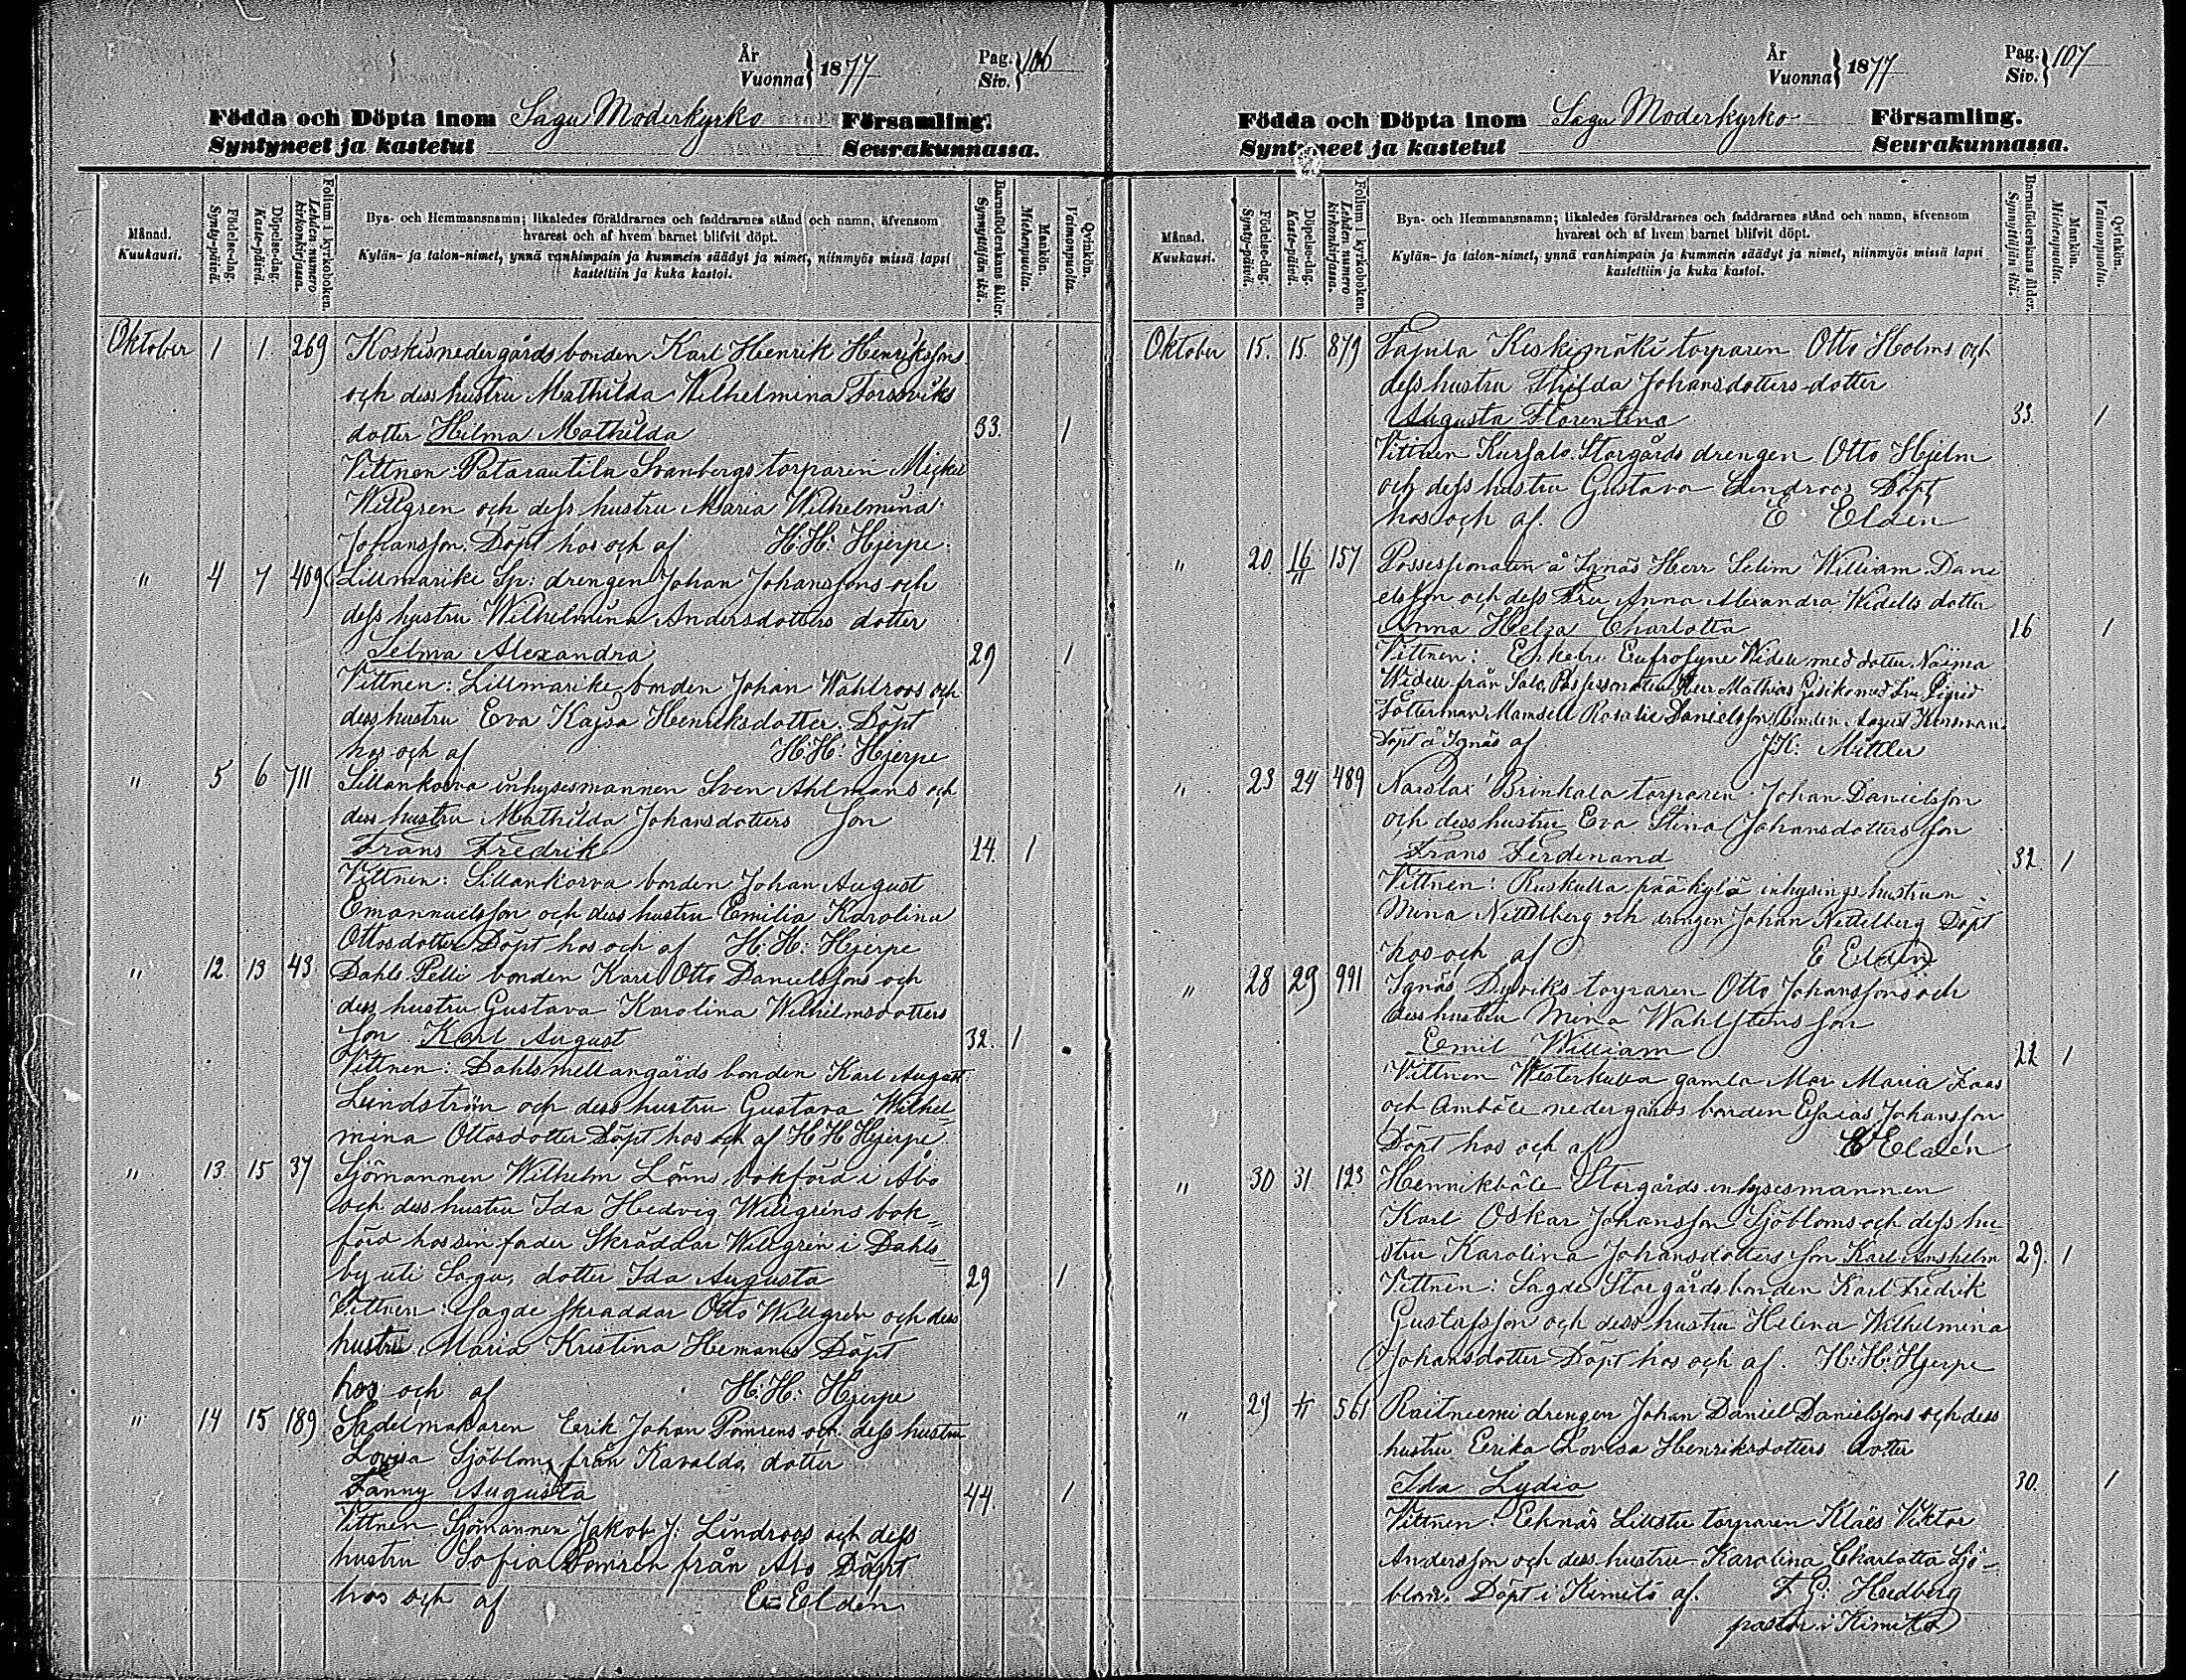 År
Vuonna } 1877
Pag.
Siv. } 106
Födda och Döpta inom Sagu Moderkyrko Församling.
Syntyneet ja kastetut Seurakunnassa.
Månad.
Kuukausi.
Födelse-dag.
Synty-päivä.
Döpelse-dag.
Kaste-päivä.
Folium i kyrkoboken.
Lehden numero kirkonkirjassa.
Bya- och Hemmansnamn; likaledes föräldrarnes och faddrarnes stånd och namn, äfvensom
hvarest och af hvem barnet blifvit döpt.
Kylän- ja talon-nimet, ynnä vanhimpain ja kummein säädyt ja nimet, niinmyös missä lapsi
kastettiin ja kuka kastoi.
Barnaföderskans ålder.
Synnyttäjän ikä.
Mankön.
Miehenpuolta.
Qvinkön.
Vaimonpuolta.
Oktober 1 1. 269 Koskisnedergårds bonden Karl Henrik Henrikssons
och dess hustru Mathilda Wilhelmina Forssviks
dotter Hilma Mathilda 33. 1
Vittnen: Patarautila Svanbergs torparen Mickel
Willgren och dess hustru Maria Wilhelmina
Johansson. Döpt hos och af H:H: Hjerpe.
" 4 7 409 Lillmarike Sp: drengen Johan Johanssons och
dess hustru Wilhelmina Andersdotters dotter
Selma Alexandra 29 1
Vittnen: Lillmarike bonden Johan Wahlroos och
dess hustru Eva Kajsa Henriksdotter. Döpt
hos och af H:H: Hjerpe
" 5 6 711 Sillankorva inhysesmannen Sven Ahlmans och
dess hustru Mathilda Johansdotters Son
Frans Fredrik 24. 1
Vittnen: Sillankorva bonden Johan August
Emannuelsson och dess hustru Emilia Karolina
Ottosdotter Döpt hos och af H:H: Hjerpe
" 12. 13 43. Dahls Pelli bonden Karl Otto Danielssons och
dess hustru Gustava Karolina Wilhelmsdotters
Son Karl August 32. 1
Vittnen: Dahlsmellangårds bonden Karl August
Lindström och dess hustru Gustava Wilhel-
mina Ottosdotter Döpt hos och af H H Hjerpe
" 13. 15 37 Sjömannen Wilhelm Lönns bokförd i Åbo
och dess hustru Ida Hedvig Willgrens bok-
förd hos sin fader Skräddar Willgrén i Dahls-
by uti Sagu, dotter Ida Augusta 29 1
Vittnen: Sagde skräddar Otto Willgrén och dess
hustru Maria Kristina Hemanus Döpt
hos och af H:H: Hjerpe
" 14 15 189 Sadelmakaren Erik Johan Pomrens och dess hustru
Lovisa Sjöbloms från Kavalda, dotter
Fanny Augusta 44. 1
Vittnen Sjömannen Jakob J: Lindroos och dess
hustru Sofia Pomrén från Åbo Döpt
hos och af E Eldén
År
Vuonna } 1877
Pag.
Siv. } 107
Födda och Döpta inom Sagu Moderkyrko Församling.
Syntyneet ja kastetut Seurakunnassa.
Månad.
Kuukausi.
Födelse-dag.
Synty-päivä.
Döpelse-dag.
Kaste-päivä.
Folium i kyrkoboken.
Lehden numero kirkonkirjassa.
Bya- och Hemmansnamn; likaledes föräldrarnes och faddrarnes stånd och namn, äfvensom
hvarest och af hvem barnet blifvit döpt.
Kylän- ja talon-nimet, ynnä vanhimpain ja kummein säädyt ja nimet, niinmyös missä lapsi
kastettiin ja kuka kastoi.
Barnaföderskans ålder.
Synnyttäjän ikä.
Mankön.
Miehenpuolta.
Qvinkön.
Vaimonpuolta.
Oktober 15. 15. 879 Tapila Keskimäki torparen Otto Holms och
dess hustru Thilda Johansdotters dotter
Augusta Florentina 33. 1
Vittnen Kursalo Storgårds drengen Otto Hjelm
och dess hustru Gustava Lindroos Döpt
hos och af. E Eldén
" 20. 16/11 157 Possessionaten å Sgnäs Herr Selim William Dani
elsson och dess Fru Anna Alexandra Widells dotter
Anna Helga Charlotta 26 1
Vittnen: Enkefru Eufrosyne Widell med dotter Naima
Widell från Salo, Possessionaten Herr Mathias med Fru Sigrid
Mamsell Rosalie Danielsson, bonden August
Döpt å Sgnäs af J K: Mittler
" 23 24 489 Narslax Brinkala torparen Johan Danielsson
och dess hustru Eva Stina Johansdotters son
Frans Ferdinand 32. 1
Vittnen: Ruskulla pääkylä inhysings hustrun
Mina Nettelberg och drengen Johan Nettelberg Döpt
hos och af E Eldén
" 28 29 991 Sgnäs Dyviks torparen Otto Johanssons och
dess hustru Mina Wahlstens son
Emil William 22 1
Vittnen Westerkulla gamla Mor Maria Laas
och Amböle nedergårds bonden Esaias Johansson
Döpt hos och af E Eldén
" 30 31 123 Hennikböle Storgårds inhysesmannen
Karl Oskar Johansson Sjöbloms och dess hu
stru Karolina Johansdotters son Karl Anshelm 29. 1
Vittnen: Sagde Storgårds bonden Karl Fredrik
Gustafsson och dess hustru Helena Wilhelmina
Johansdotter Döpt hos och af. H:H: Hjerpe
" 29 561 Raitneemi drengen Johan Daniel Danielssons och dess
hustru Erika Lovisa Henriksdotters dotter
Ida Lydia 30. 1
Vittnen: Eknäs Lillstu torparen Klaës Viktor
Andersson och dess hustru Karolina Charlotta Sjö-
blom. Döpt i Kimito af. F. G: Hedberg
pastor i Kimito